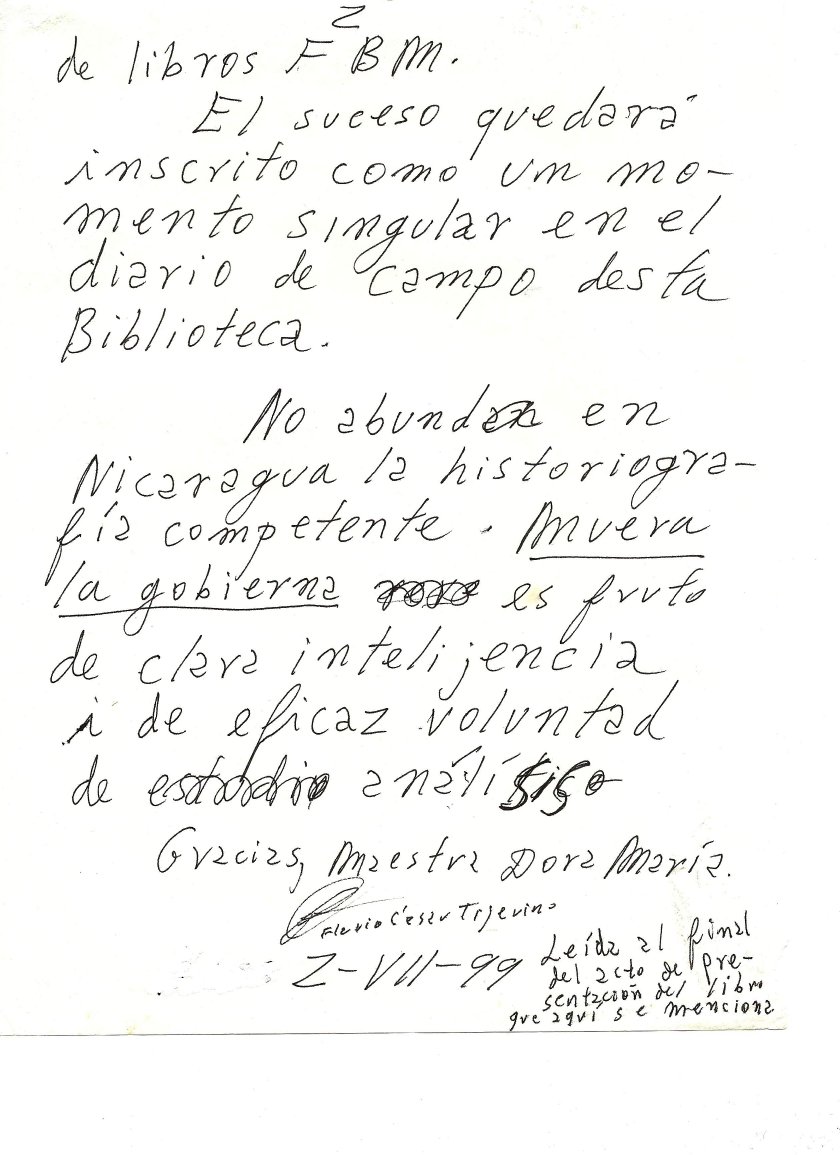 2
de libros FBM.
El suceso quedará
inscrito como un mo-
mento singular en el
diario de campo desta
Biblioteca.
No abunda en
Nicaragua la historiogra-
fía competente. Muera
la gobierna es fruto
de clara inteligencia
i de eficaz voluntad
de análisis
Gracias, Maestra Dora María.
Flavio César Tijerino
2-VII-99
Leída al final
del acto de pre-
sentación del libro
que aquí se menciona